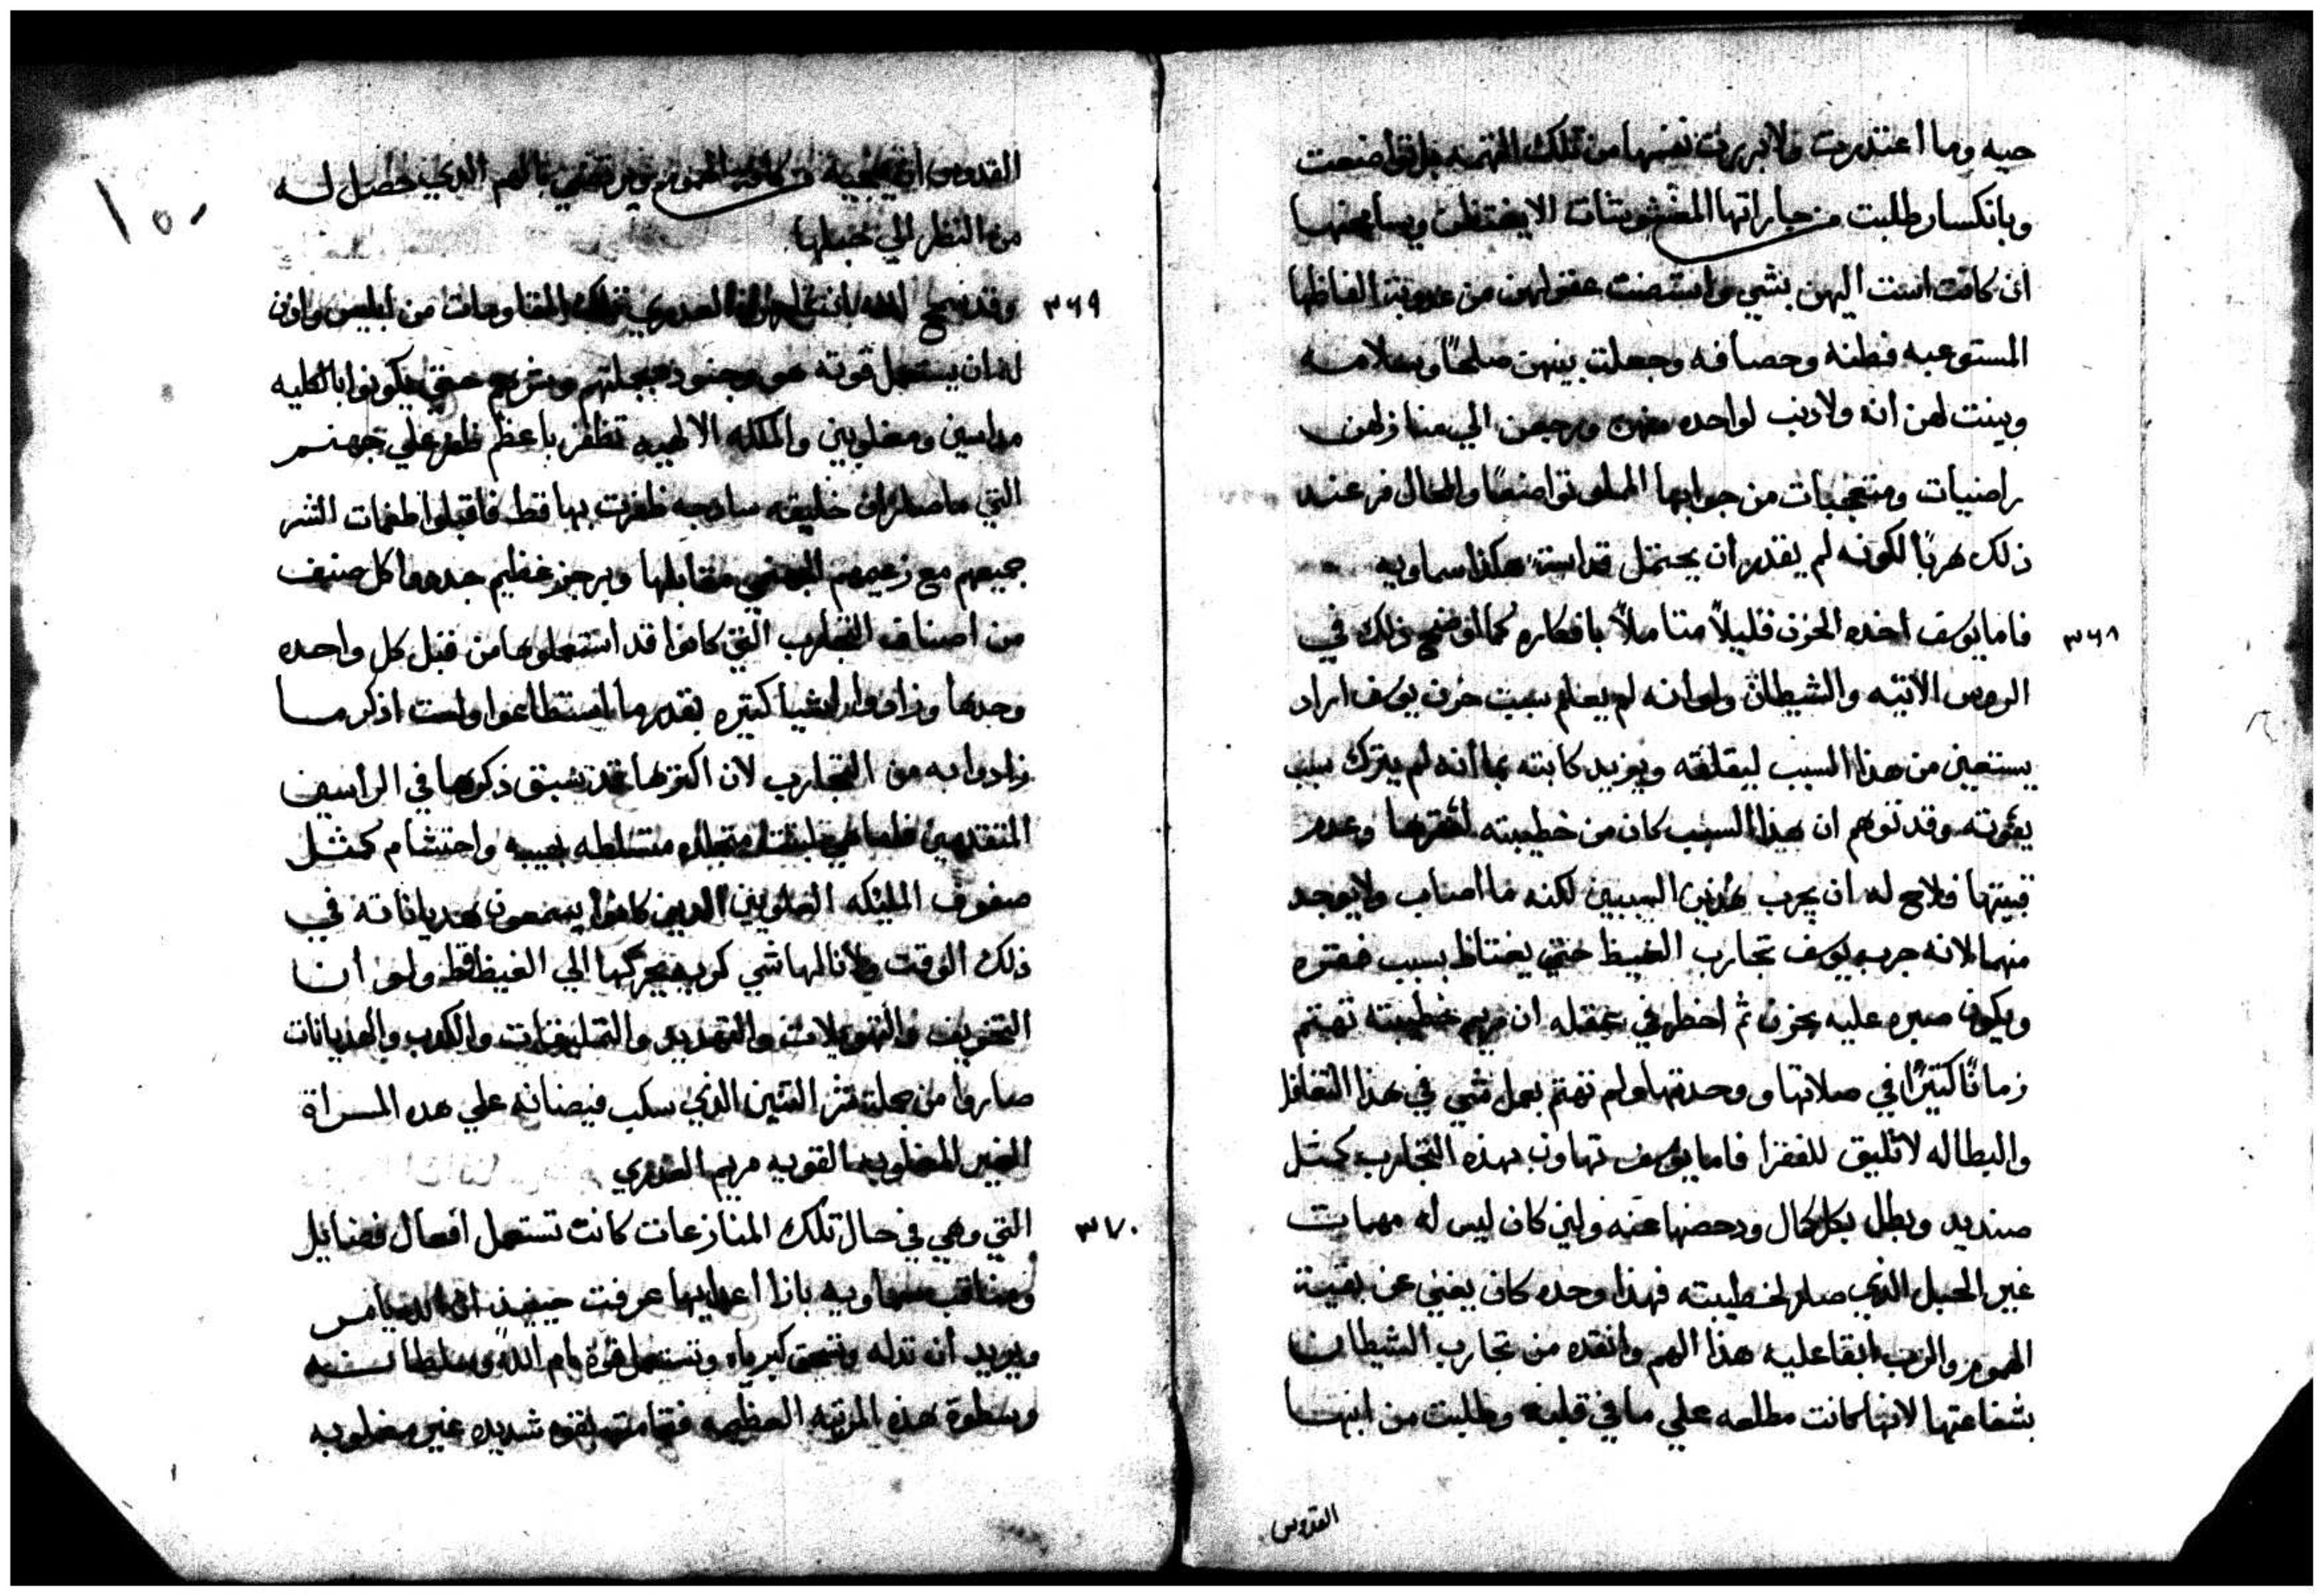 حيه وما اعتذرت ولا بررت نفسها من تلك التهمه بل تواضعت
وبانكسار طلبت من جاراتها المغشوشات الا يغتظن ويسامحنها
ان كانت اسئت اليهن بشي واستضت عقولهن من عدوبة الفاظها
المستوعبه فطنه وحصافه وجعلت بينهن صلحًا وسلامه
وبينت لهن انه ولا دنب لواحده منهن ورجعن الي منازلهن
راضيات ومتعجبات من جوابها المملو تواضعًا والمحال فر عند
ذلك هربًا لكونه لم يقدر ان يحتمل قداسة هكذا سماويه
٣٦٨ فاما يوسف اخذه الحزن قليلاً متاملاً بافكاره كما اوضح ذلك في
الروس الاتيه والشيطان ولو انه لم يعلم سبب حزن يوسف اراد
يستعين من هذا السبب ليقلقه ويزيد كابته بما انه لم يترك سبب
يفوته وقد توهم ان هذا السبب كان من خطيبته لفقرها وعدم
قنيتها فلاح له ان يجرب هذين السببين لكنه ما اصاب ولا يوجد
منهما لانه جرب يوسف تجارب الغيظ حتي يغتاظ بسبب فقره
ويكون صبره عليه بحزن ثم اخطر في عقله ان مريم خطيبته تهتم
زمانًا كتيرًا في صلاتها ووحدتها ولم تهتم بعمل شي في هذا التغافل
والبطاله لا تليق للفقرا فاما يوسف تهاون بهذه التجارب كمثل
صنديد وبطل بكل كمال ودحضها عنه ولين كان ليس له مهمات
غير الحبل الذي صار لخطيبته فهذا وحده كان يغني عن بقية
الهموم والرب ابقا عليه هذا الهم وانقده من تجارب الشيطان
بشفاعتها لانها كانت مطلعه علي ما في قلبه وطلبت من ابنها
القدوس
القدوس ان ينجيه من تلك الهموم ويرتضي بالهم الذي حصل له
من النظر الي حبلها
٣٦٩ وقد سمح الله العدري تلك المقاومات من ابليس واذن
له ان يستعمل قوته هو وجنوده بجملتهم وشرهم حتي يكونوا بالكليه
مداسين ومغلوبين والملكه الالهيه تظفر باعظم ظفر علي جهنم
التي ما صار ان خليقه سادجه ظفرت بها قط فاقبلوا طغمات الشر
جميعهم مع زعيمهم الجهنمي مقابلها وبرجز عظيم جددوا كل صنف
من اصناف التجارب التي كانوا قد استعملوها من قبل كل واحده
وحدها وزادوا اشيا كتيره بقدر ما استطاعوا ولست اذكر ما
زادوا به من التجارب لان اكترها قد سبق ذكرها في الراسين
المتقدمين فاما هي متسلطه بهيبه واحتشام كمثل
صفوف المليكه العلويين الدين كانوا يسمعون هديانانه في
ذلك الوقت ولا نالها شي كربه يحركها الي الغيظ قط ولو ان
التخويف والتهويلات والتهديد والتمليقات والكدب والهديانات
صاروا من جملة شر التنين الذي سكب فيضانه علي هده المراة
الغير المغلوبه القويه مريم العدري
٣٧٠ التي وهي في حال تلك المنازعات كانت تستعمل افعال فضايل
ومناقب سماويه بازا اعدايها عرفت حينيذ ان الله يامر
ويريد ان تدله وتسحق كبرياه وتستعمل قوة ام الله وسلطانه
وسطوة هذه المرتبه العظيمه فقامت بقوه شديده غير مغلوبه
١٥٠